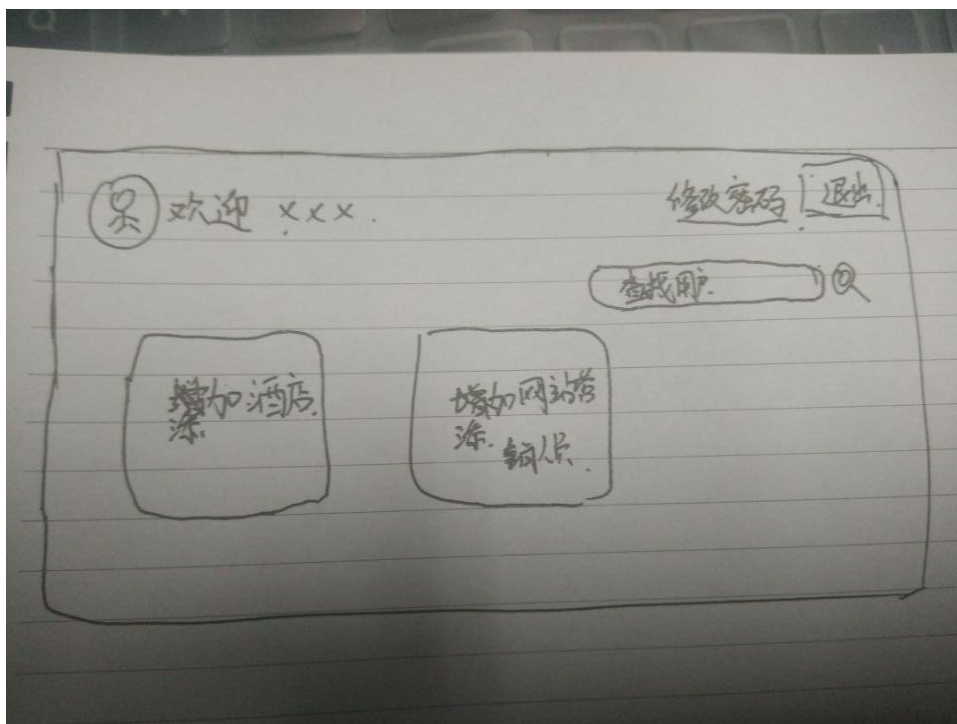 欢迎 ×××.
修改密码 退出
查找用户
增加酒店
添
增加网站营
添. 销人员.